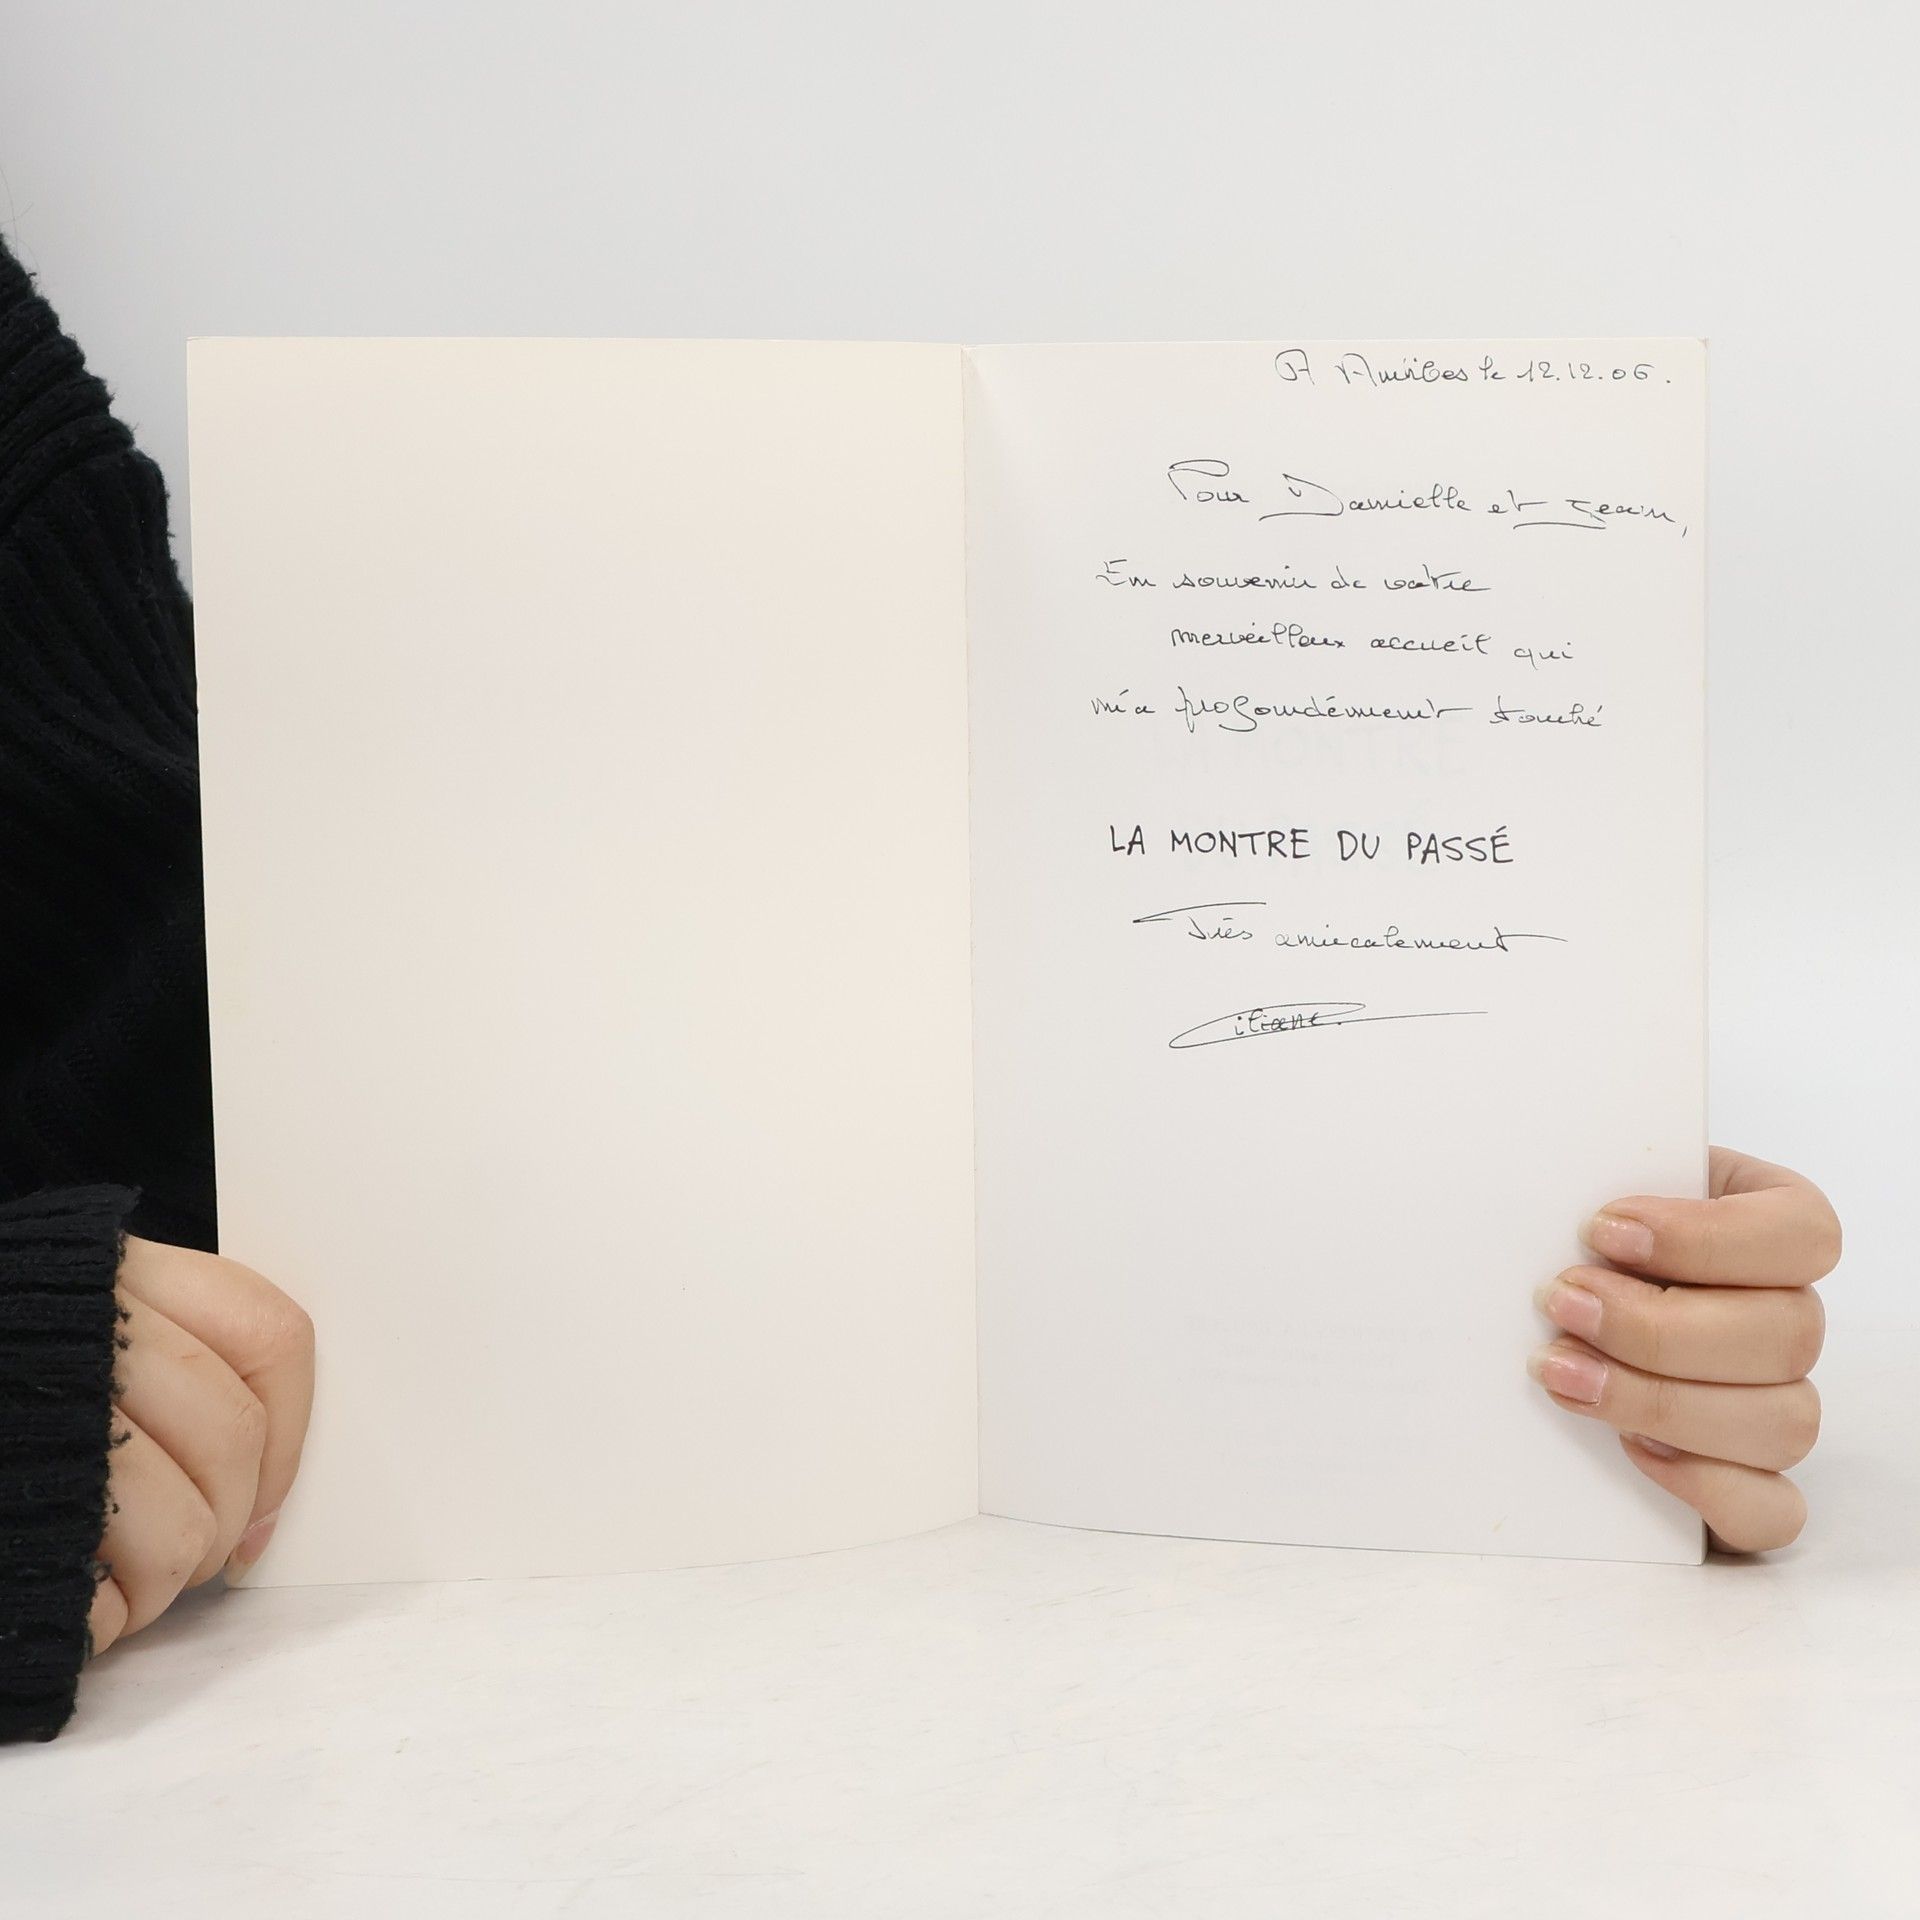 A Antibes le 12.12.06.
Pour Danielle et Jean,
En souvenir de votre
merveilleux accueil qui
m'a profondément touché
LA MONTRE DU PASSÉ
Très amicalement